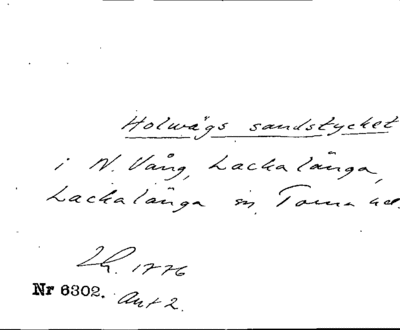 Holwägs sandstycket
i N. Vång, Lackalänga,
Lackalänga sn, Torna hd.
Lh. 1776
Nr 6302. Akt 2.